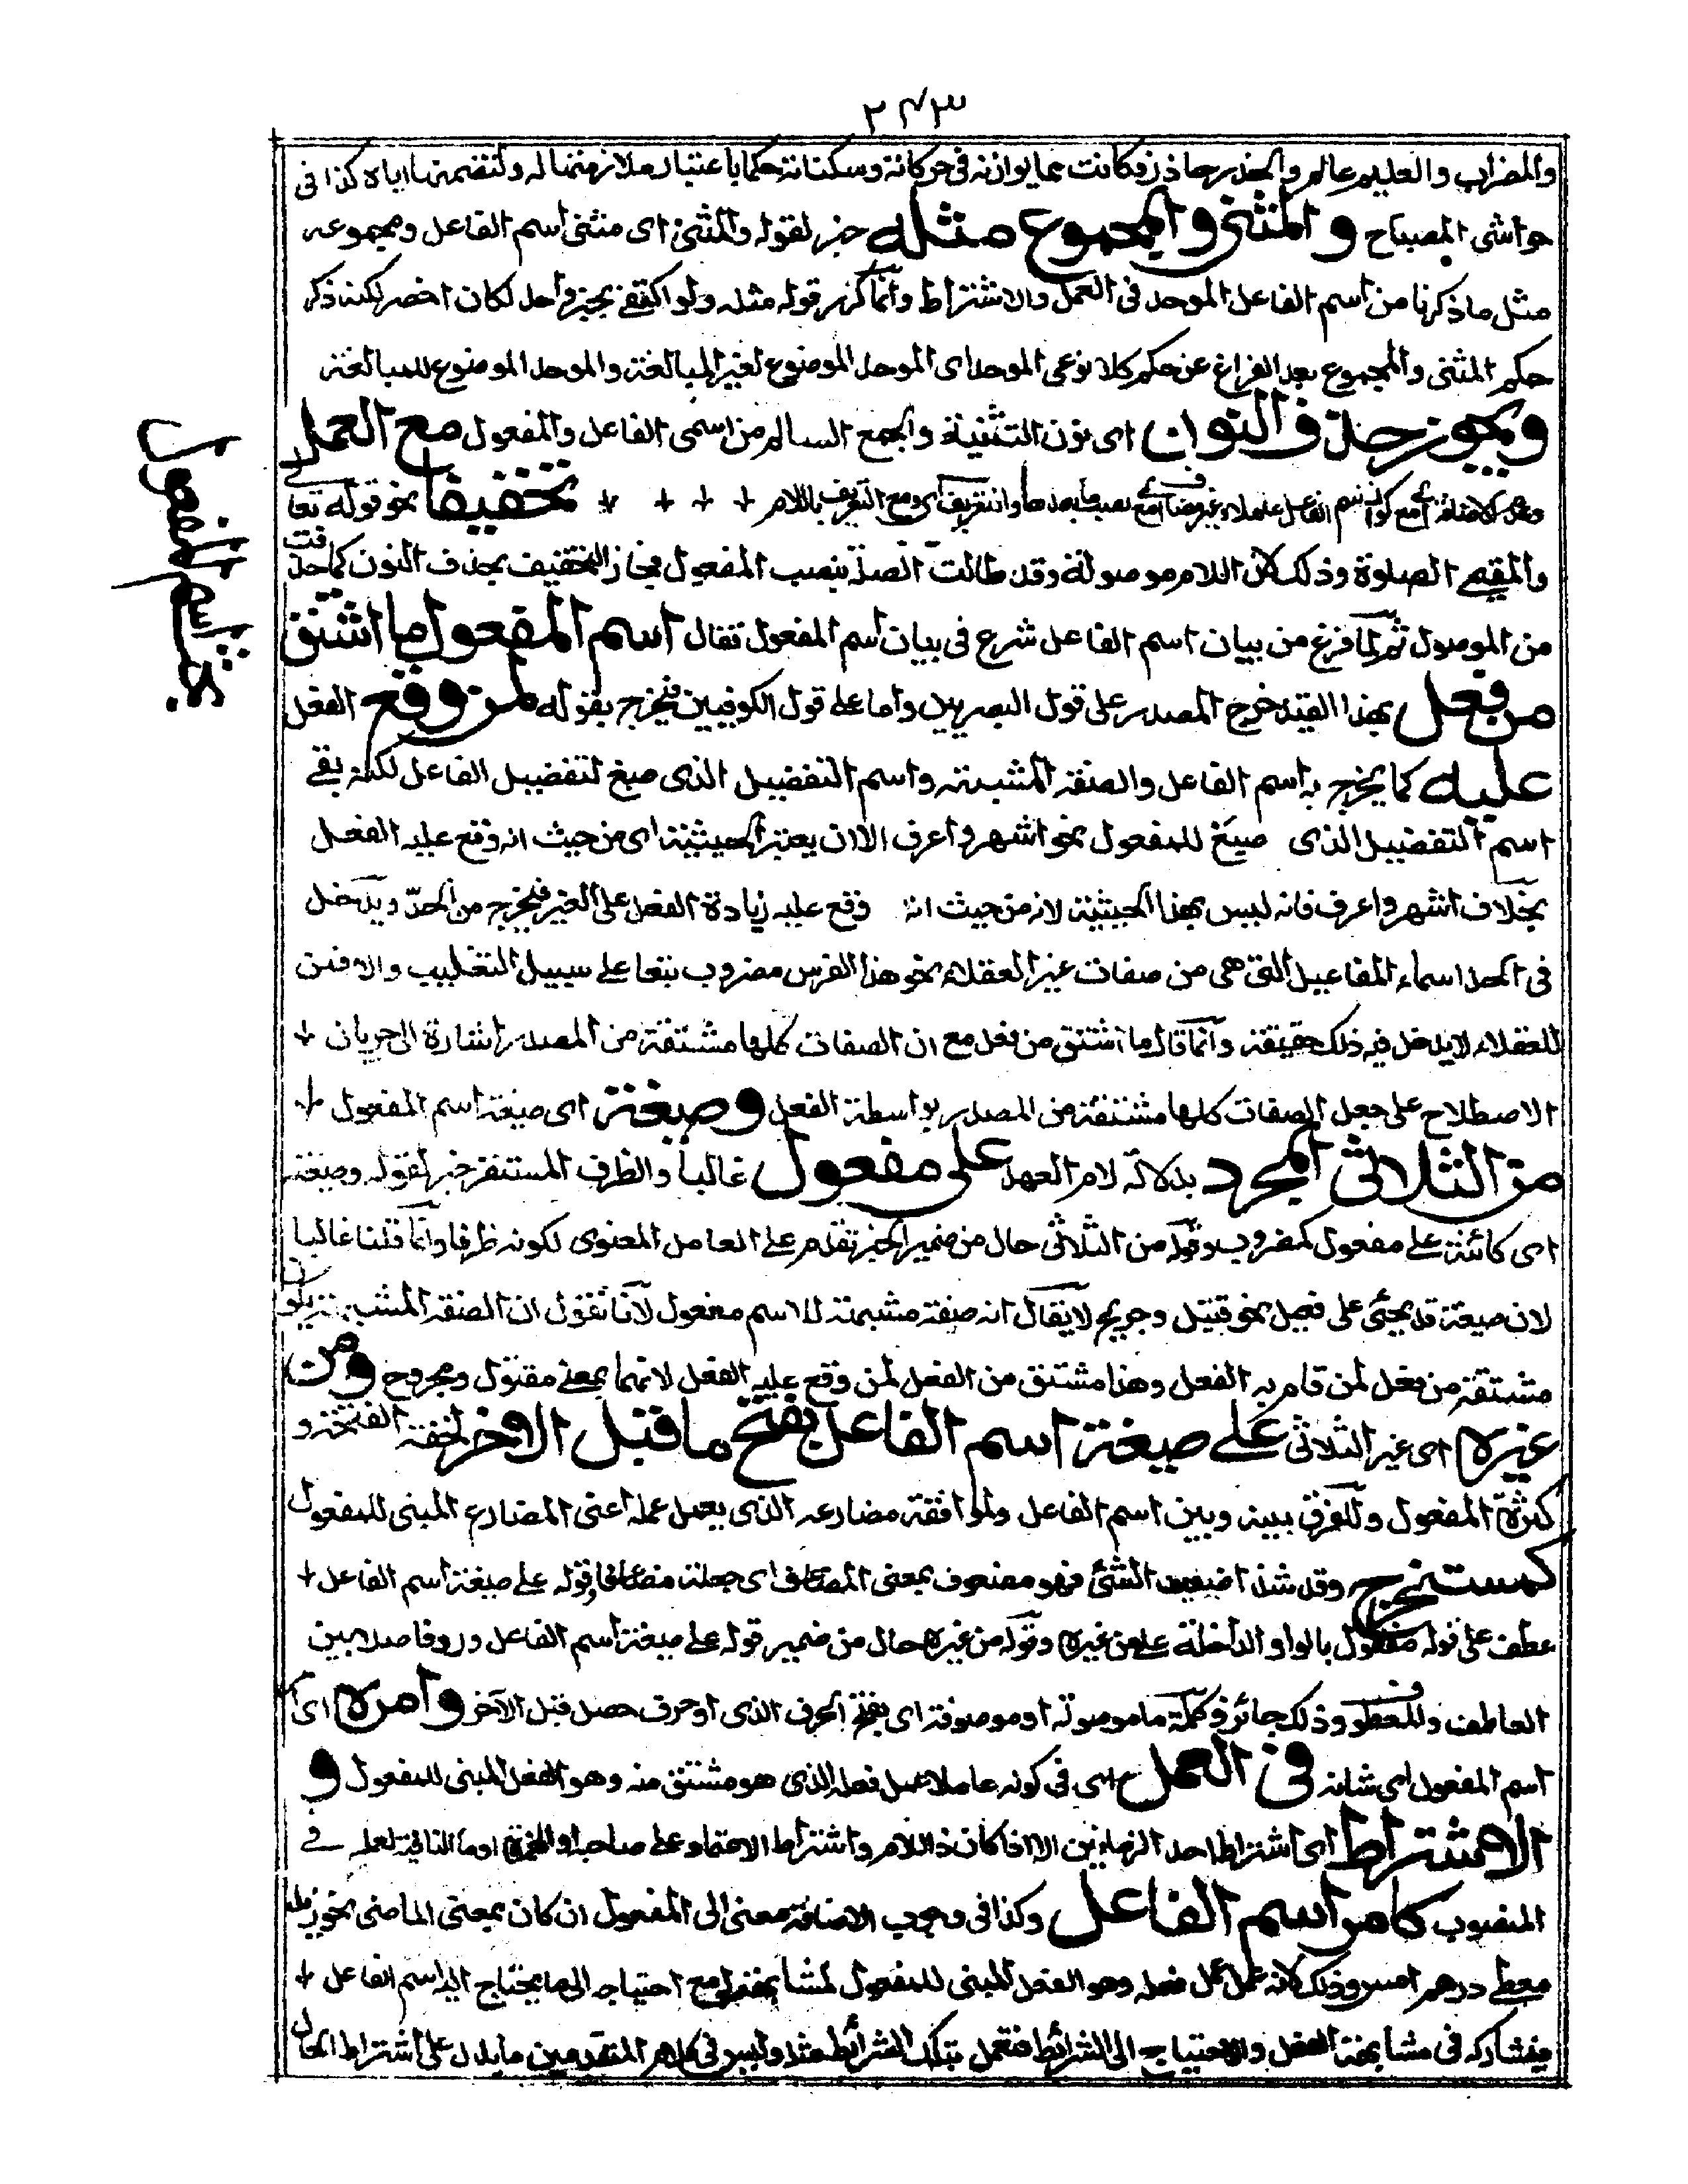 ٢٤٣
والمضراب والعليم عالم والحذر حاذر فكانت مما يوازنه في حركاته وسكناته حكما باعتبار ملازمتها له ولتضمنها اياه كذا في
حواشي المصباح والمثنى والمجموع مثله خبر لقوله والمثنى اى مثنى اسم الفاعل ومجموعه
مثل ما ذكرنا من اسم الفاعل الموحد في العمل والاشتراط وانما كرر قوله مثله ولو اكتفى بخبر واحد لكان اخصر لكنه ذكر
حكم المثنى والمجموع بعد الفراغ عن حكم كلا نوعى الموحد اى الموحد الموضوع لغير المبالغة والموحد الموضوع للمبالغة
ويجوز حذف النون اى نون التثنية والجمع السالم من اسمى الفاعل والمفعول مع العمل
اسم الفاعل عاملا والتعريف اى ومع التعريف باللام تخفيفا نحو قوله تعالى
والمقيمى الصلوة وذلك لان اللام موصولة وقد طالت الصلة بنصب المفعول فجاز التخفيف بحذف النون كما حذفت
من الموصول ثم لما فرغ من بيان اسم الفاعل شرع في بيان اسم المفعول فقال اسم المفعول ما اشتق
من فعل بهذا القيد خرج المصدر على قول البصريين واما على قول الكوفيين فيخرج بقوله لمن وقع الفعل
عليه كما يخرج به اسم الفاعل والصفة المشبهة واسم التفضيل الذى صيغ لتفضيل الفاعل لكنه بقى
اسم التفضيل الذى صيغ للمفعول نحو اشهر واعرف الا ان يعتبر الحيثية اى من حيث انه وقع عليه الفعل
بخلاف اشهر واعرف فانه ليس بهذا الحيثية لانه من حيث انه وقع عليه زيادة الفعل على الغير فيخرج من الحد ويدخل
في الحد اسماء المفاعيل التى هى من صفات غير العقلاء نحو هذا الفرس مضروب تبعا على سبيل التغليب والا فمن
للعقلاء لا يدخل فيه ذلك حقيقة وانما قال ما اشتق من فعل مع ان الصفات كلها مشتقة من المصدر اشارة الى جريان
الاصطلاح على جعل الصفات كلها مشتقة من المصدر بواسطة الفعل وصيغته اى صيغة اسم المفعول
من الثلاثى المجرد بدلالة لام العهد على مفعول غالبا والظرف المستقر خبر لقوله وصيغته
اى كائنة على مفعول كمضروب وقوله من الثلاثى حال من ضمير الخبر تقدم على العامل المعنوى لكونه ظرفا وانما قلنا غالبا
لان صيغته قد يجئ على فعيل نحو قتيل وجريح لا يقال انه صفة مشبهة لا اسم مفعول لانا نقول ان الصفة المشبهة يكون
مشتقة من فعل لمن قام به الفعل وهذا مشتق من الفعل لمن وقع عليه الفعل لانهما بمعنى مقتول ومجروح ومن
غيره اى غير الثلاثى على صيغة اسم الفاعل بفتح ما قبل الاخر لخفة الفتحة و
كثرة المفعول وللفرق بينه وبين اسم الفاعل ولموافقة مضارعه الذى يعمل عمله اعنى المضارع المبنى للمفعول
كمستخرج وقد شذ اضعفت الشئ فهو مضعوف بمعنى المضاعف اى جعلته مضاعفا وقوله على صيغة اسم الفاعل
عطف على قوله مفعول بالواو الداخلة على من غيره وقوله من غيره حال من ضمير قوله على صيغة اسم الفاعل وروفا صلا بين
العاطف والمعطوف وذلك جائز وكلمة ما موصولة او موصوفة اى بفتح الحرف الذى او حرف حصل قبل الآخر وامره اى
اسم المفعول اى شانه في العمل اى في كونه عاملا عمل فعله الذى هو مشتق منه وهو الفعل المبنى للمفعول و
الاشتراط اى اشتراط احد الزمانين الا اذا كان ذا اللام واشتراط الاعتماد على صاحبه او الهمزة او ما النافية لعمله في
المنصوب كامر اسم الفاعل وكذا في وجوب الاضافة معنى الى المفعول ان كان بمعنى الماضى نحو زيد
معطى درهم امس وذلك لانه عمل عمل فعله وهو الفعل المبنى للمفعول لمشابهته مع احتياجه الى ما يحتاج اليه اسم الفاعل
فيشاركه في مشابهة الفعل والاحتياج الى الشرائط فتعمل بتلك الشرائط مثله وليس في كلام المتقدمين ما يدل على اشتراط الحال
بحث اسم المفعول